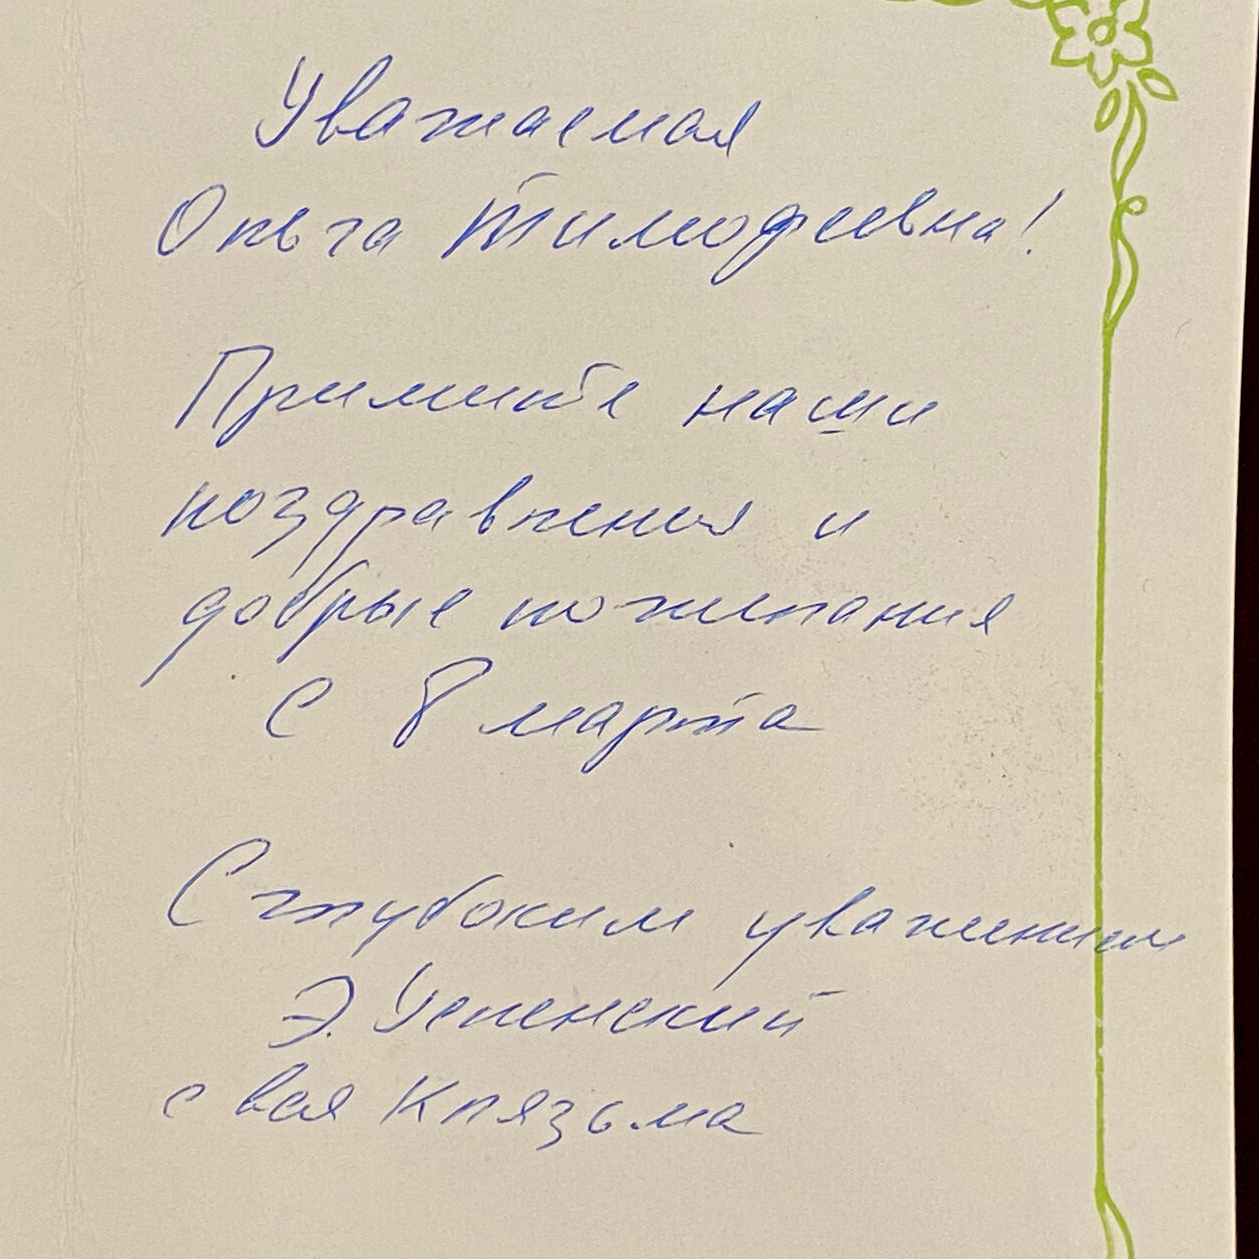 Уважаемая
Ольга Тимофеевна!
Примите наши
поздравления и
добрые пожелания
С 8 марта
С глубоким уважением
Э. Успенский
Клязьма